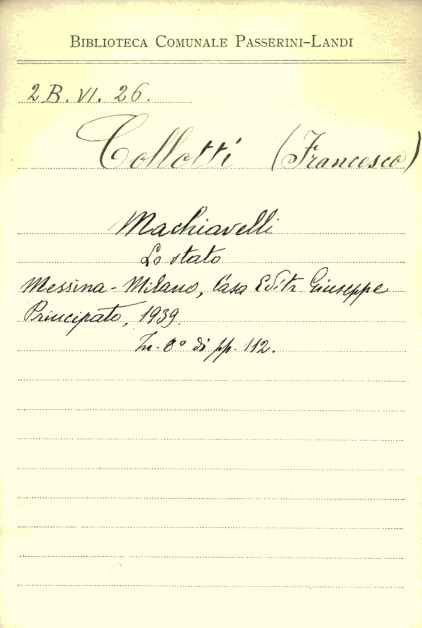 BIBLIOTECA COMUNALE PASSERINI-LANDI
2 B. VI. 26.
Collotti (Francesco)
Machiavelli
Lo stato
Messina - Milano, Casa Editr. Giuseppe
Principato, 1939.
In-8° di pp. 112.